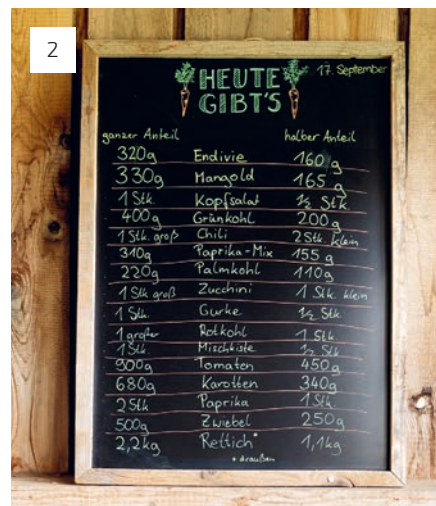 2
HEUTE 17. September
GIBT'S
ganzer Anteil halber Anteil
320g Endivie 160 g
330g Mangold 165 g
1 Stk. Kopfsalat 1/2 Stk
400g Grünkohl 200g
1 Stk. groß Chili 2 Stk. klein
310g Paprika-Mix 155 g
220g Palmkohl 110g
1 Stk groß Zucchini 1 Stk. klein
1 Stk. Gurke 1/2 Stk
1 großer Rotkohl 1 Stk
1 Stk. Mischkiste 1/2 Stk
900g Tomaten 450g
680g Karotten 340g
2 Stk Paprika 1 Stk.
500g Zwiebel 250g
2,2kg Rettich* 1,1kg
* draußen